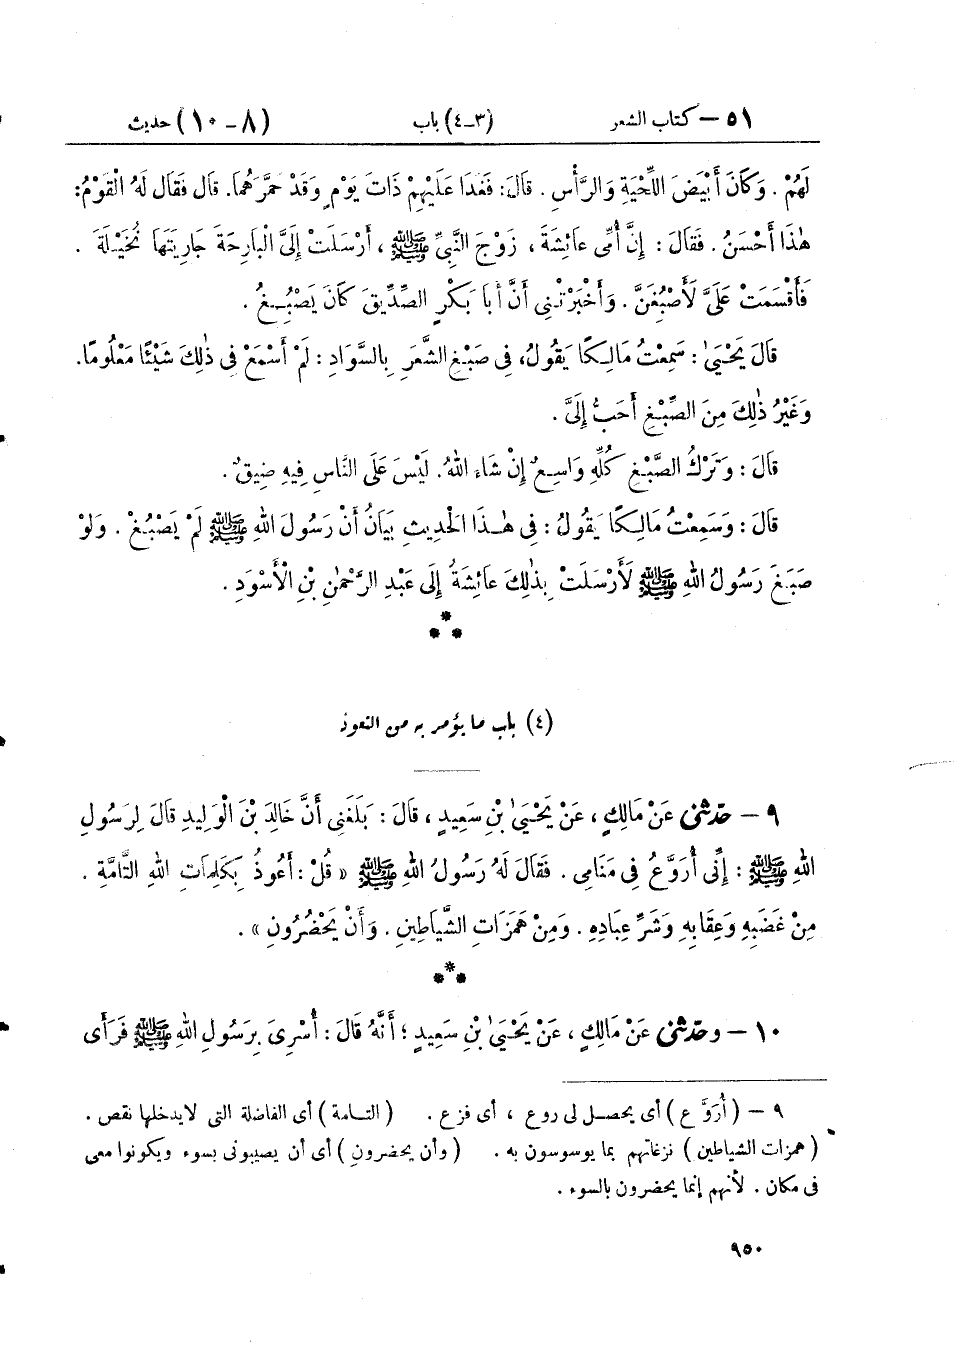 ٥١ – كتاب الشعر (٣-٤) باب (٨-١٠) حديث
لَهُمْ . وَكَانَ أَبْيَضَ اللِّحْيَةِ وَالرَّأْسِ . قَالَ: فَغَدَا عَلَيْهِمْ ذَاتَ يَوْمٍ وَقَدْ حَمَّرَهُمَا. قال فَقَالَ لَهُ الْقَوْمُ:
هٰذَا أَحْسَنُ . فَقَالَ : إِنَّ أُمِّى عَائِشَةَ ، زَوْجَ النَّبِيِّ ﷺ ، أَرْسَلَتْ إِلَىَّ الْبَارِحَةَ جَارِيَتَهَا نُخَيْلَةَ .
فَأَقْسَمَتْ عَلَىَّ لَأَصْبُغَنَّ . وَأَخْبَرَتْنِى أَنَّ أَبَا بَكْرٍ الصِّدِّيقَ كَانَ يَصْبُغُ .
قَالَ يَحْيَىٰ : سَمِعْتُ مَالِكًا يَقُولُ، فِى صَبْغِ الشَّعَرِ بِالسَّوَادِ : لَمْ أَسْمَعْ فِى ذٰلِكَ شَيْئًا مَعْلُومًا.
وَغَيْرُ ذٰلِكَ مِنَ الصِّبْغِ أَحَبُّ إِلَىَّ .
قَالَ : وَتَرْكُ الصَّبْغِ كُلِّهِ وَاسِعٌ إِنْ شَاءَ اللهُ. لَيْسَ عَلَى النَّاسِ فِيهِ ضِيقٌ .
قَالَ : وَسَمِعْتُ مَالِكًا يَقُولُ : فِى هٰذَا الْحَدِيثِ بَيَانُ أَنَّ رَسُولَ اللهِ ﷺ لَمْ يَصْبُغْ . وَلَوْ
صَبَغَ رَسُولُ اللهِ ﷺ لَأَرْسَلَتْ بِذٰلِكَ عَائِشَةُ إِلَى عَبْدِ الرَّحْمٰنِ بْنِ الْأَسْوَدِ .
***
(٤) باب ما يؤمر به من التعوذ
٩ – حَدَّثَنِى عَنْ مَالِكٍ ، عَنْ يَحْيَىٰ بْنِ سَعِيدٍ ، قَالَ : بَلَغَنِى أَنَّ خَالِدَ بْنَ الْوَلِيدِ قَالَ لِرَسُولِ
اللهِ ﷺ : إِنِّى أُرَوَّعُ فِى مَنَامِى . فَقَالَ لَهُ رَسُولُ اللهِ ﷺ « قُلْ : أَعُوذُ بِكَلِمَاتِ اللهِ التَّامَّةِ .
مِنْ غَضَبِهِ وَعِقَابِهِ وَشَرِّ عِبَادِهِ . وَمِنْ هَمَزَاتِ الشَّيَاطِينِ . وَأَنْ يَحْضُرُونِ » .
***
١٠ – وحَدَّثَنِى عَنْ مَالِكٍ ، عَنْ يَحْيَىٰ بْنِ سَعِيدٍ ؛ أَنَّهُ قَالَ : أُسْرِىَ بِرَسُولِ اللهِ ﷺ فَرَأَى
٩ – ( أُرَوَّع ) أى يحصل لى روع ، أى فزع . ( التامة ) أى الفاضلة التى لايدخلها نقص .
( همزات الشياطين ) نزغاتهم بما يوسوسون به . ( وأن يحضرون ) أى أن يصيبونى بسوء ويكونوا معى
فى مكان . لأنهم إنما يحضرون بالسوء .
٩٥٠